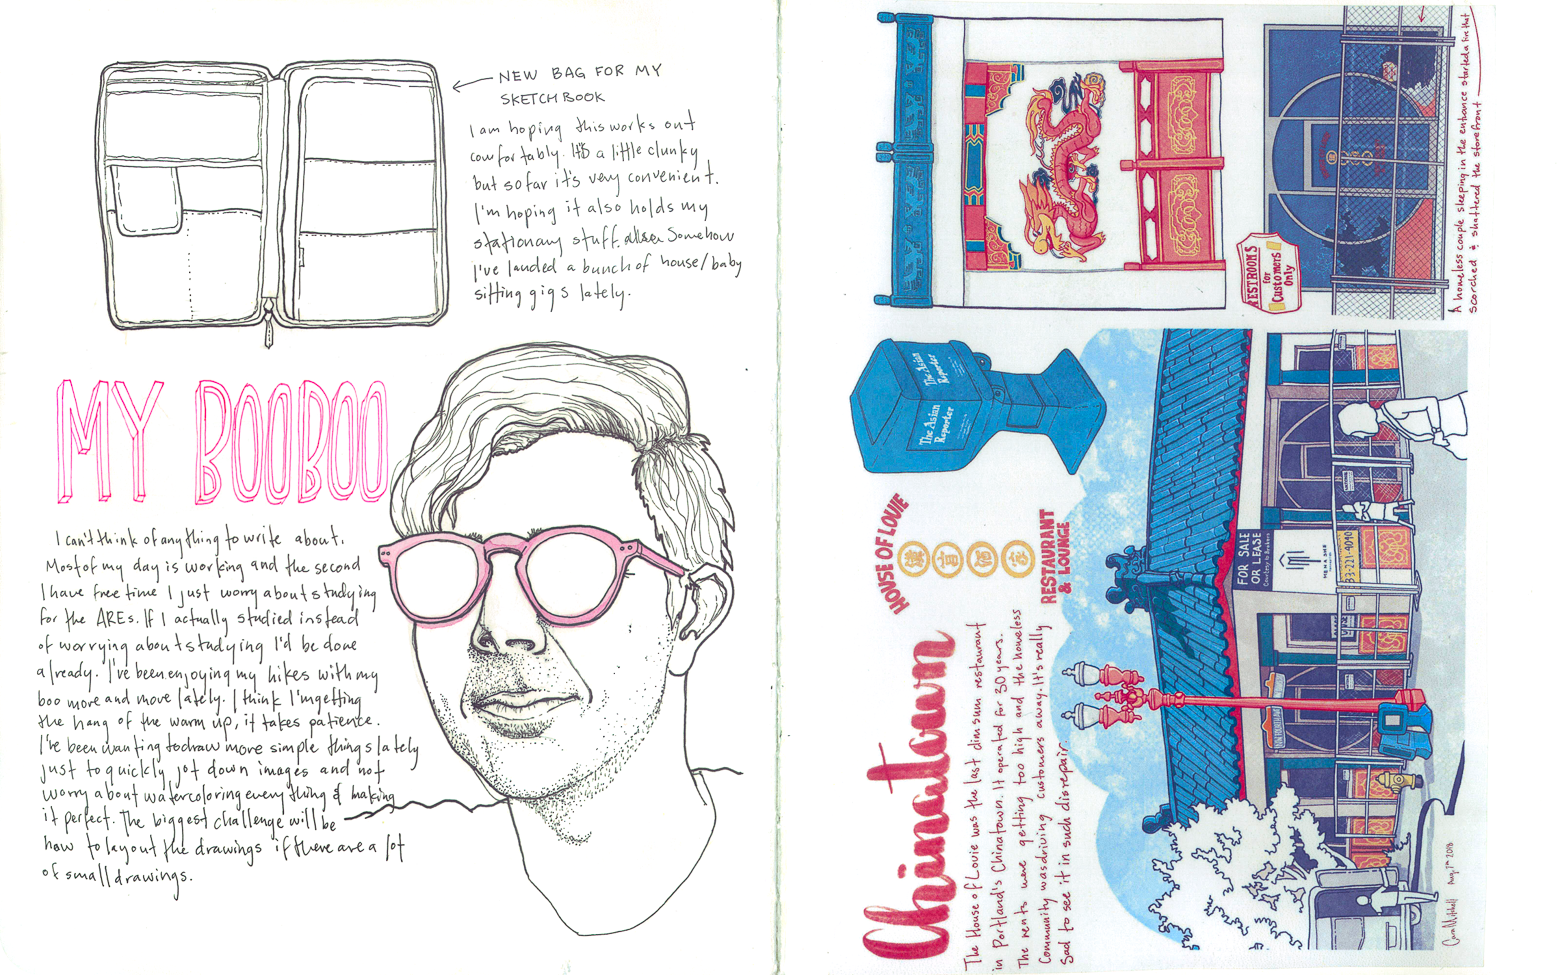 NEW BAG FOR MY
SKETCHBOOK
I am hoping this works out
comfortably. It's a little clunky
but so far it's very convenient.
I'm hoping it also holds my
stationary stuff. Somehow
I've landed a bunch of house/baby
sitting gigs lately.
MY BOOBOO
I can't think of anything to write about.
Most of my day is working and the second
I have free time I just worry about studying
for the AREs. If I actually studied instead
of worrying about studying I'd be done
already. I've been enjoying my hikes with my
boo more and more lately. I think I'm getting
the hang of the warm up, it takes patience.
I've been wanting to draw more simple things lately
just to quickly jot down images and not
worry about watercoloring everything & making
it perfect. The biggest challenge will be
how to layout the drawings if there are a lot
of small drawings.
Chinatown
The House of Louie was the last dim sum restaurant
in Portland's Chinatown. It operated for 30 years.
The rents were getting too high and the homeless
community was driving customers away. It's really
sad to see it in such disrepair.
HOUSE OF LOUIE
RESTAURANT
& LOUNGE
The Asian
Reporter
The Asian
Reporter
RESTROOMS
for
Customers
Only
A homeless couple sleeping in the entrance started a fire that
scorched & shattered the storefront
FOR SALE
OR LEASE
Courtesy to Brokers
33-221-4040
Cara Mitchell Aug. 7th 2018